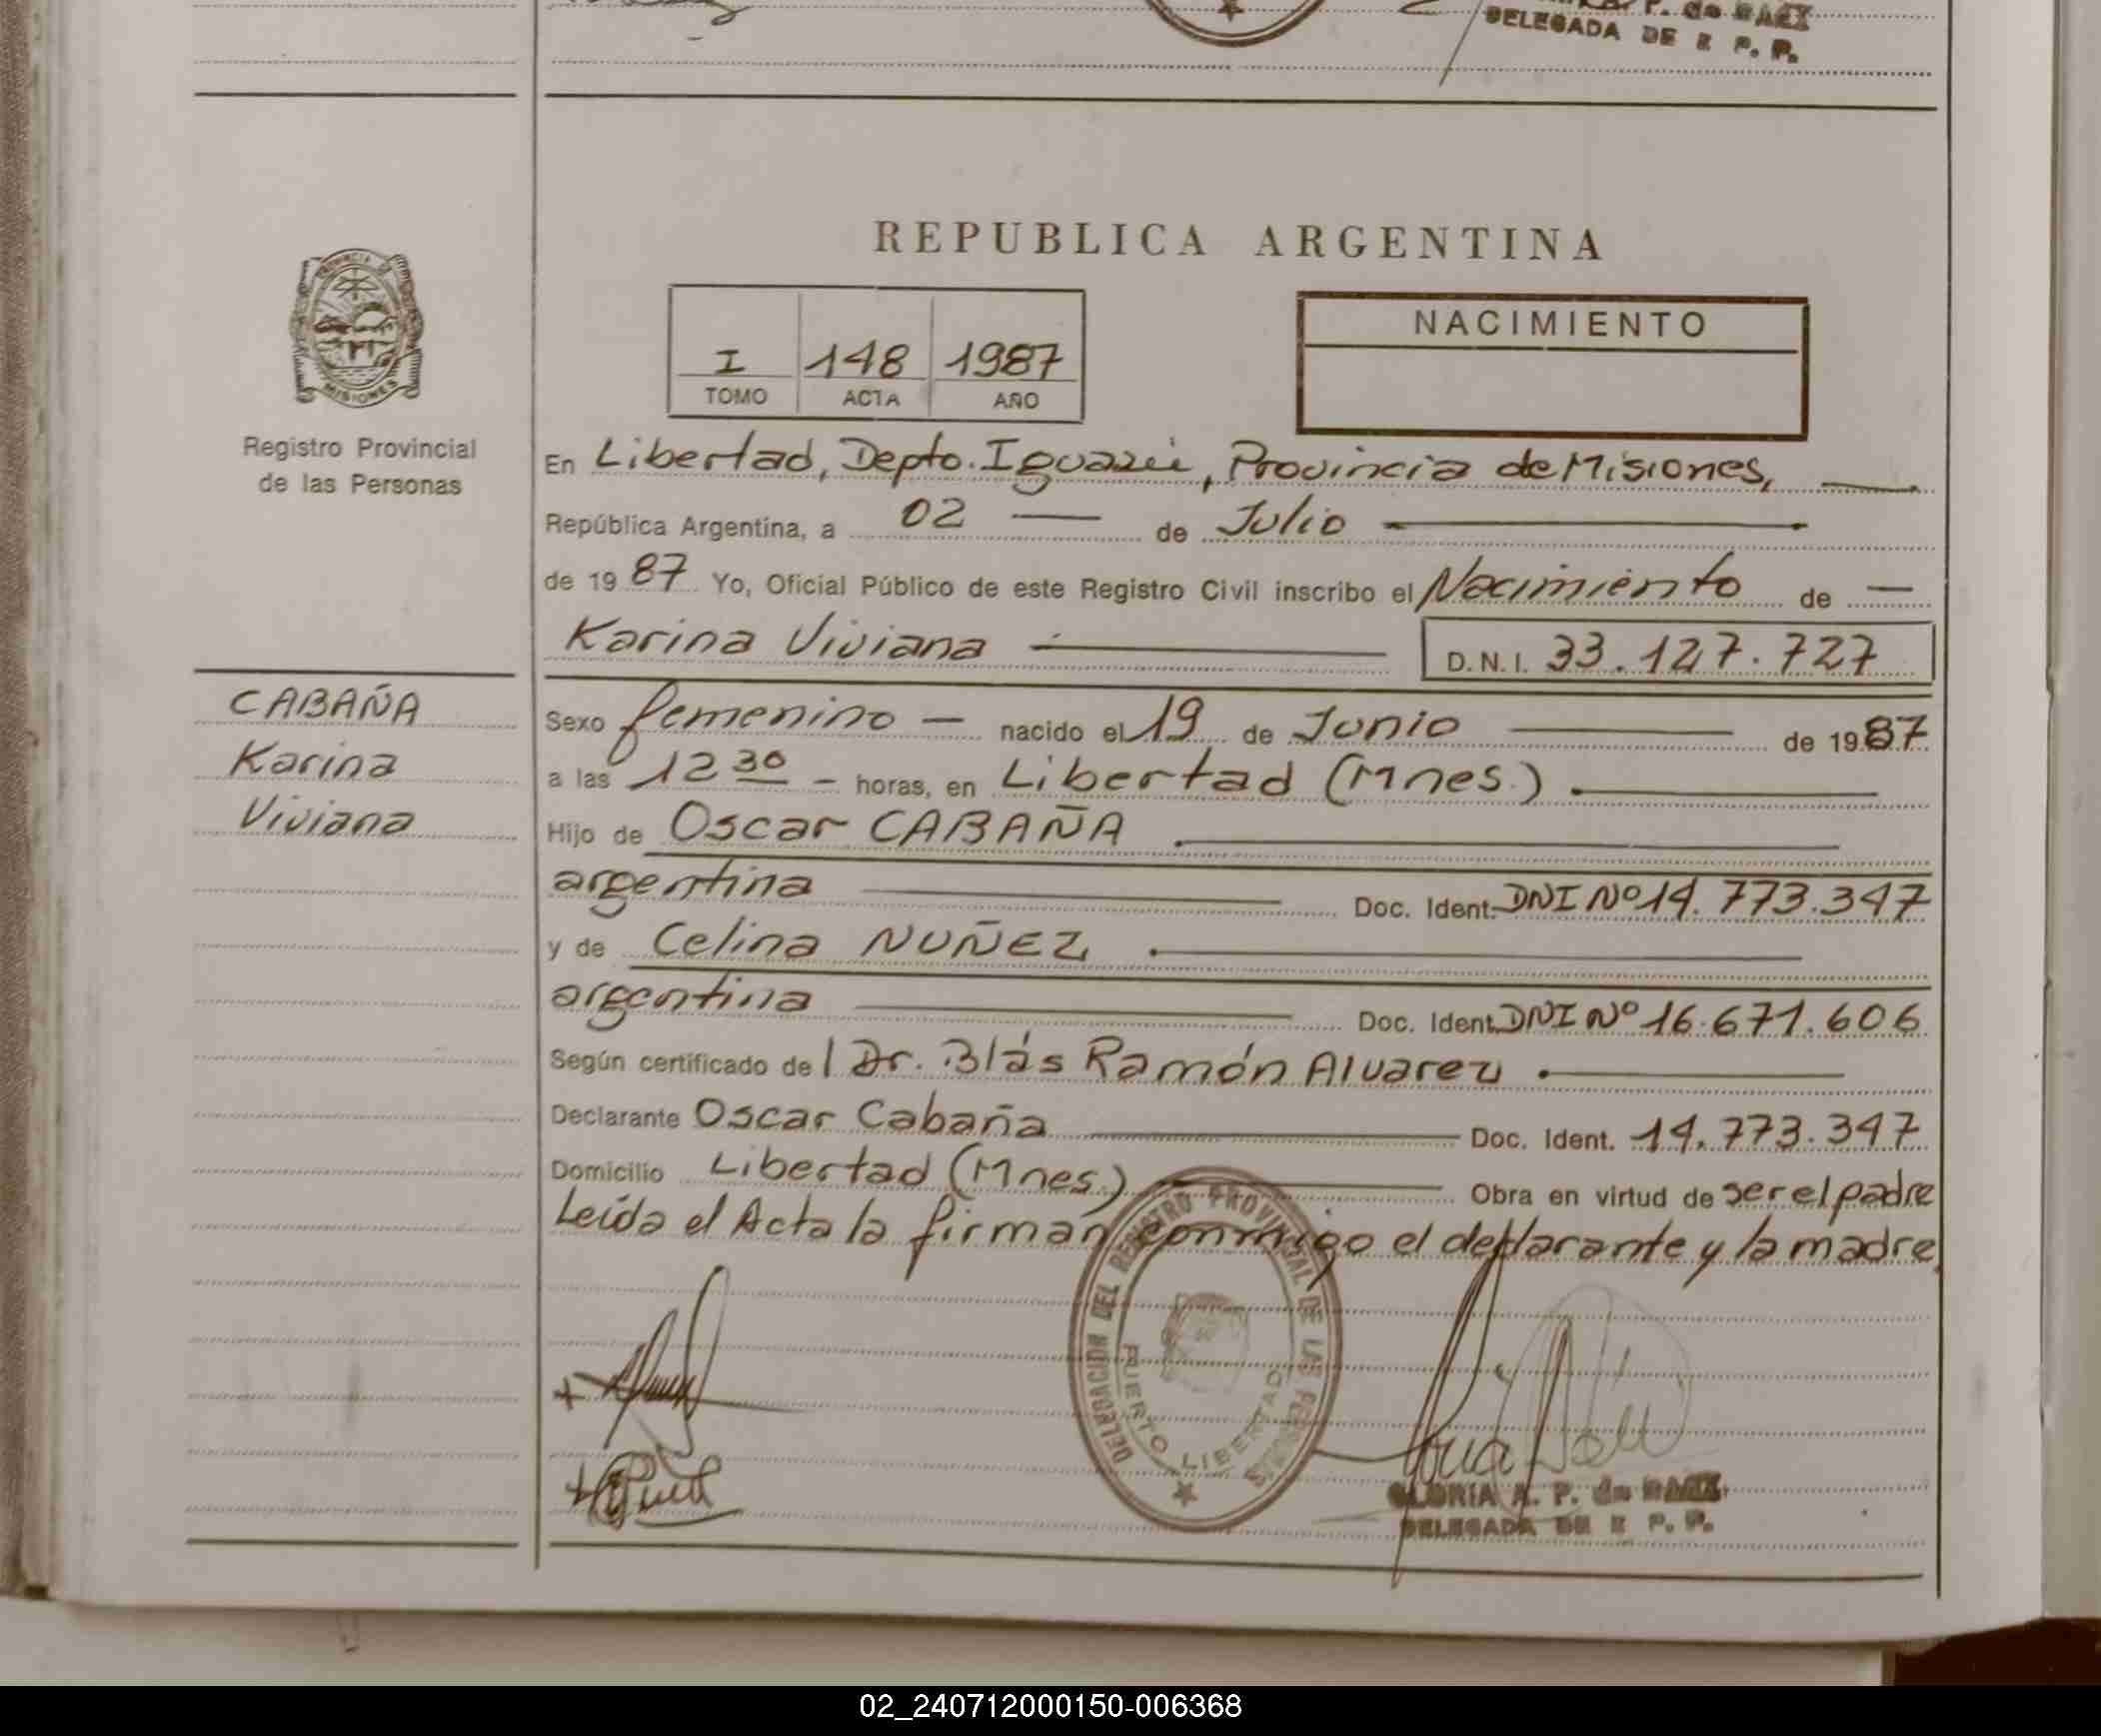 P. de BAEZ
DELEGADA DE E P. P.
REPUBLICA ARGENTINA
PROVINCIA DE
MISIONES
Registro Provincial
de las Personas
I 148 1987
TOMO ACTA AÑO
NACIMIENTO
En Libertad, Depto. Iguazú, Provincia de Misiones,
República Argentina, a 02 de Julio
de 1987 Yo, Oficial Público de este Registro Civil inscribo el Nacimiento de
Karina Viviana D.N.I. 33.127.727
CABAÑA
Karina
Viviana
Sexo femenino nacido el 19 de Junio de 1987
a las 12 30 horas, en Libertad (Mnes.)
Hijo de Oscar CABAÑA
argentina Doc. Ident. DNI Nº 14.773.347
y de Celina NUÑEZ
argentina Doc. Ident. DNI Nº 16.671.606
Según certificado del Dr. Blás Ramón Alvarez
Declarante Oscar Cabaña Doc. Ident. 14.773.347
Domicilio Libertad (Mnes.) Obra en virtud de ser el padre
Leída el Acta la firman conmigo el declarante y la madre
DELEGACION DEL REGISTRO PROVINCIAL DE LAS PERSONAS
PUERTO LIBERTAD
GLORIA A. P. de BAEZ
DELEGADA DE E P. P.
02_240712000150-006368